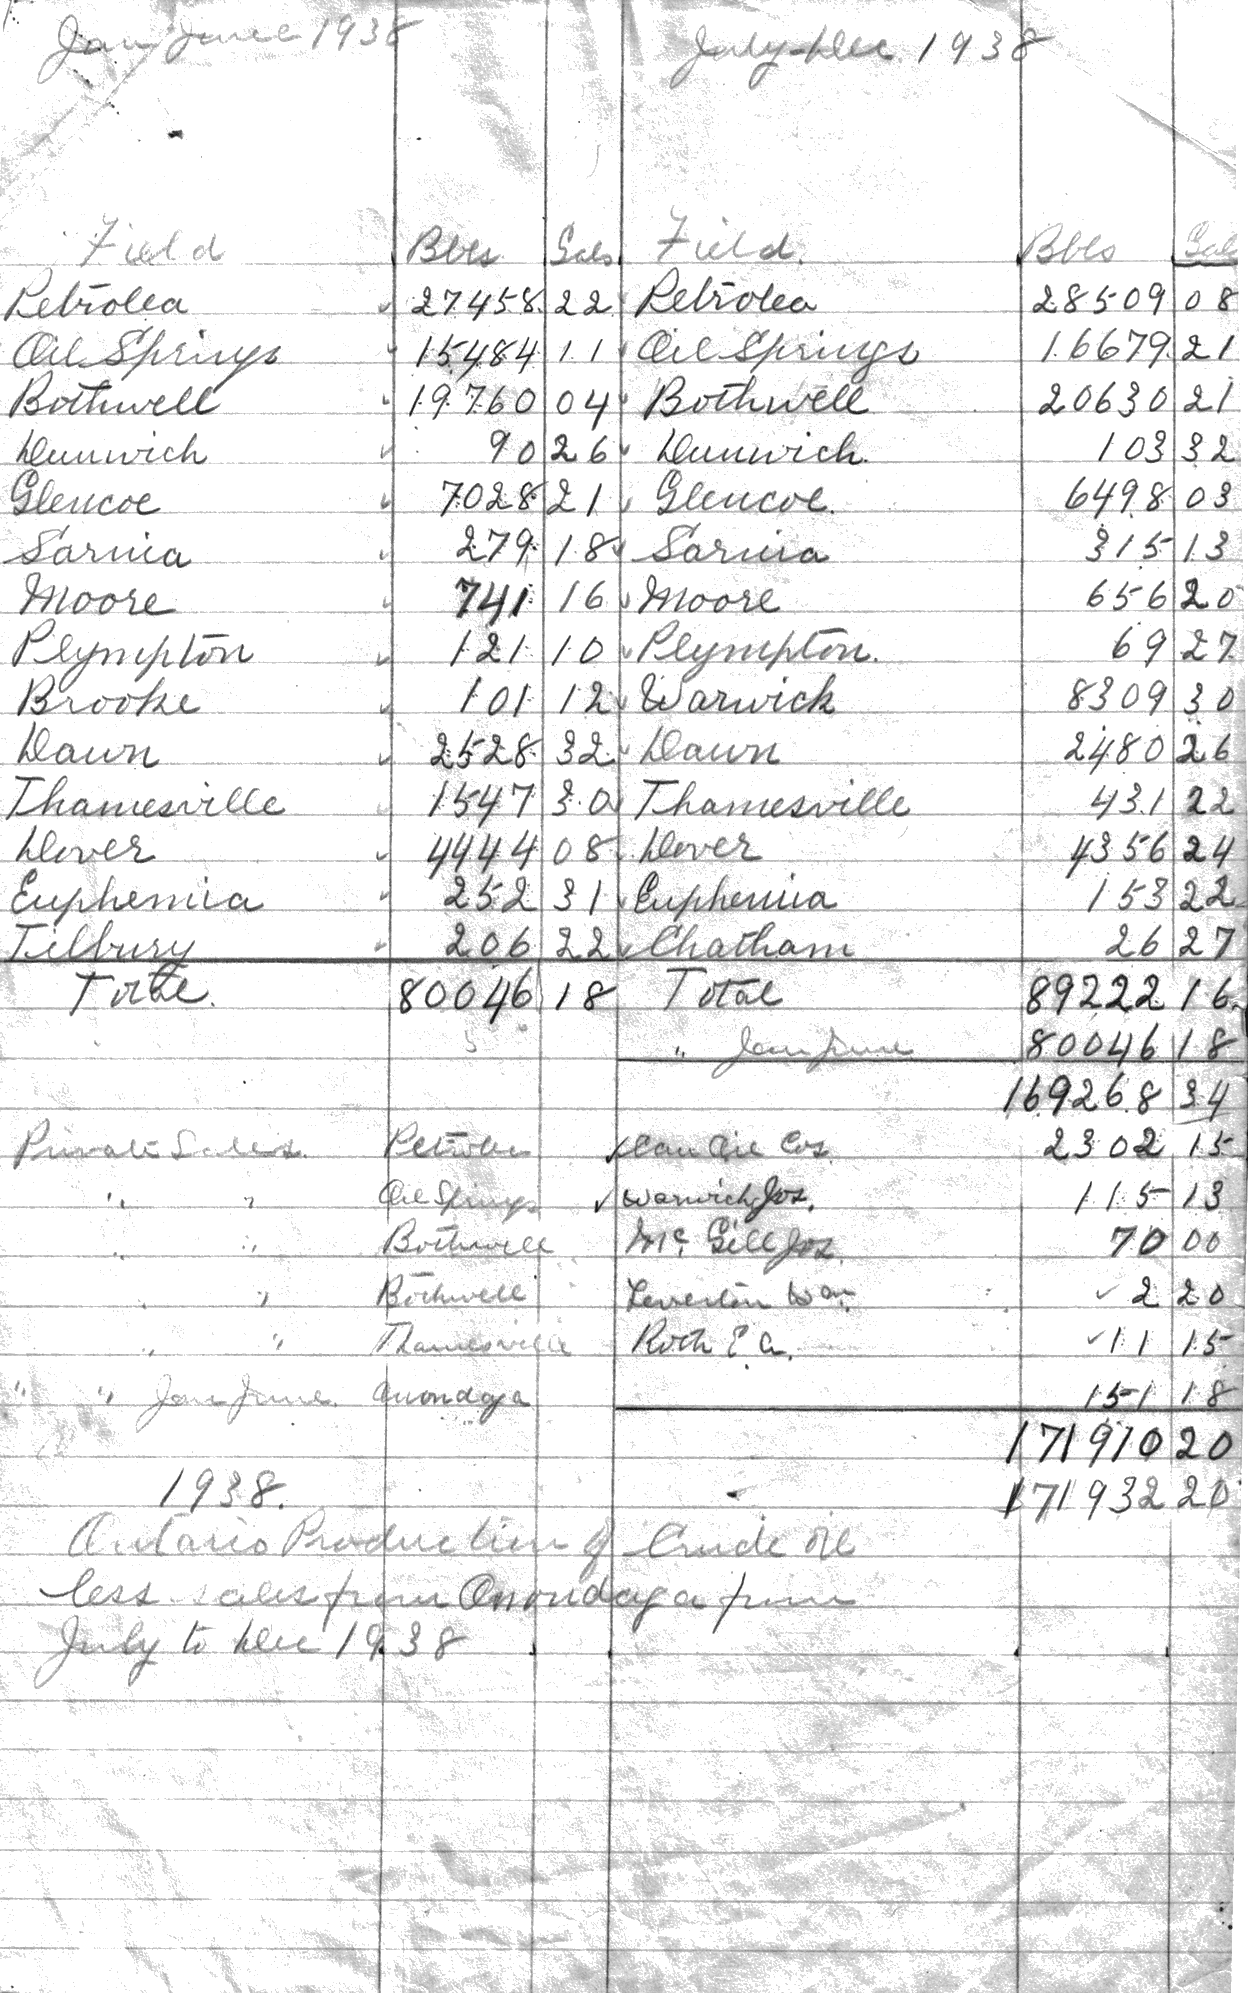 Jan June 1938 July-Dec. 1938
Field Bbls Gals Field. Bbls Gals
Petrolea 27458 22 Petrolea 28509 08
Oil Springs 15484 11 Oil Springs 16679 21
Bothwell 19760 04 Bothwell 20630 21
Dunwich 90 26 Dunwich. 103 32
Glencoe 7028 21 Glencoe. 6498 03
Sarnia 279 18 Sarnia 315 13
Moore 741 16 Moore 656 20
Plympton 121 10 Plympton. 69 27
Brooke 101 12 Warwick 8309 30
Dawn 2528 32 Dawn 2480 26
Thamesville 1547 30 Thamesville 431 22
Dover 4444 08 Dover 4356 24
Euphemia 252 31 Euphemia 153 22
Tilbury 206 22 Chatham 26 27
Total. 80046 18 Total 89222 16
" Jan June 80046 18
169268 34
Private Sales. Petrolea ✓ Can Oil Cos. 2302 15
" " Oil Springs ✓ Warwick Jos. 115 13
" " Bothwell Mc Gill Jos. 70 00
" " Bothwell Leverton Wm. ✓ 2 20
" " Thamesville Roth E a. ✓ 11 15
" " Jan June. Onondaga 151 18
171910 20
1938. 171932 20
Ontario Production of Crude Oil
less sales from Onondaga from
July to Dec 1938